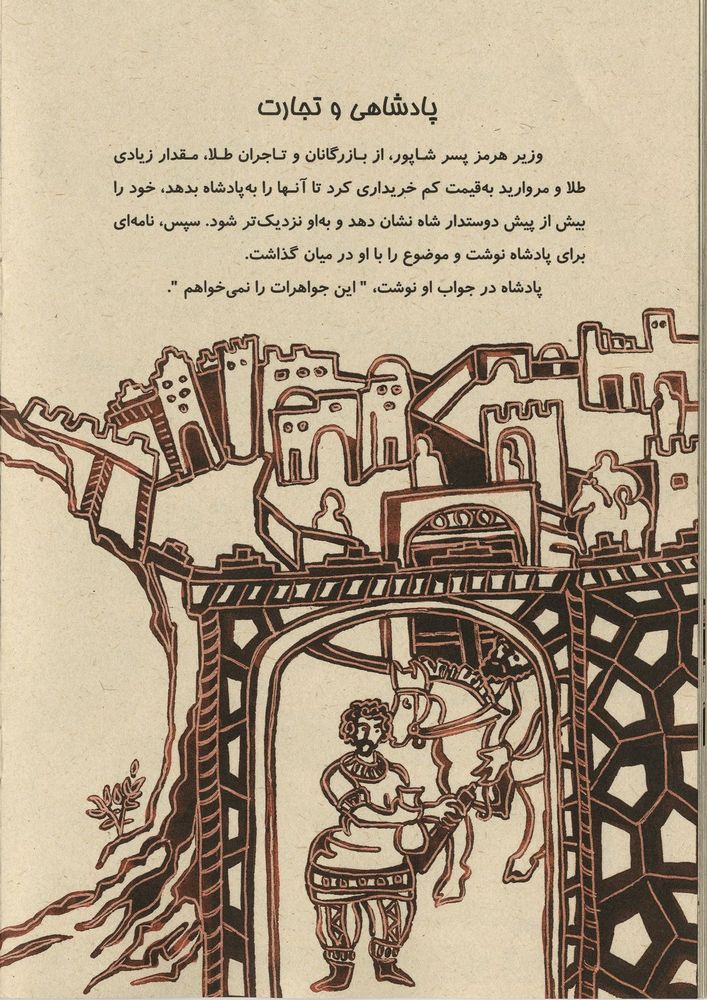 پادشاهی و تجارت
وزیر هرمز پسر شاپور، از بازرگانان و تاجران طلا، مقدار زیادی
طلا و مروارید به‌قیمت کم خریداری کرد تا آنها را به‌پادشاه بدهد، خود را
بیش از پیش دوستدار شاه نشان دهد و به‌او نزدیک‌تر شود. سپس، نامه‌ای
برای پادشاه نوشت و موضوع را با او در میان گذاشت.
پادشاه در جواب او نوشت، " این جواهرات را نمی‌خواهم ".